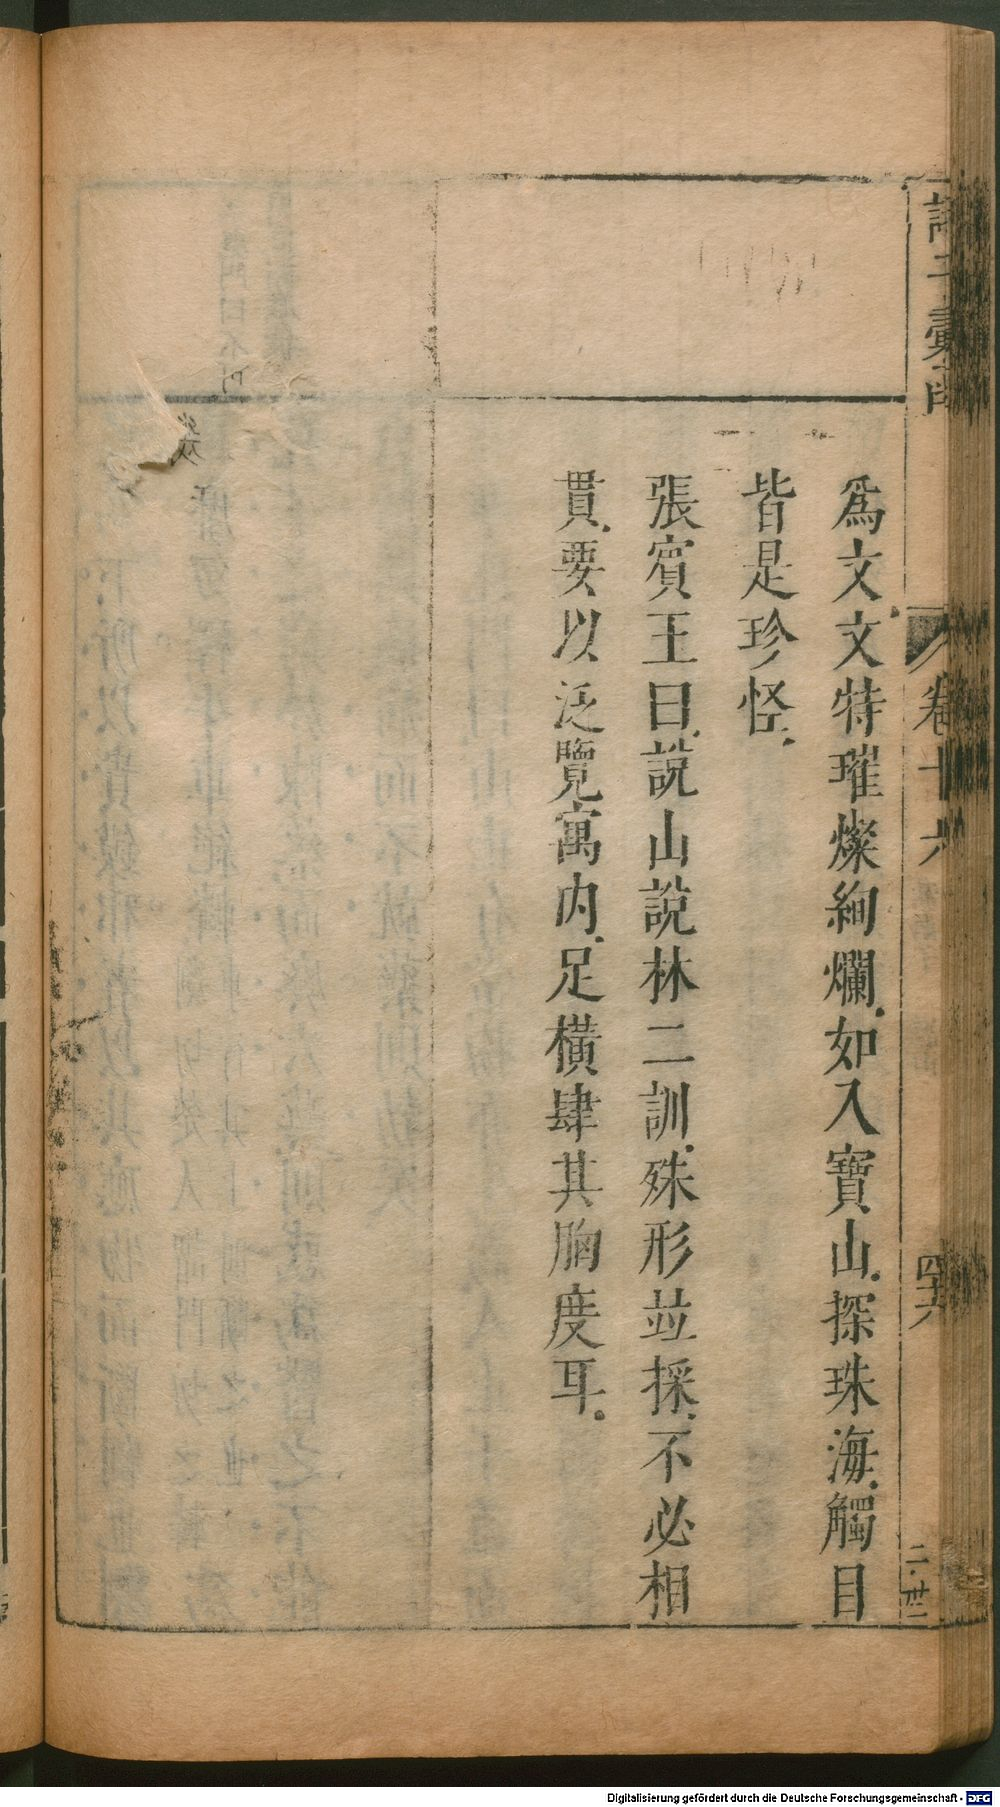 諸子彙函
卷十六
四十六
爲文文特璀燦絢爛如入寶山探珠海觸目
皆是珍怪
張賓王曰說山說林二訓殊形並採不必相
貫要以泛覽寓內足橫肆其胸度耳
Digitalisierung gefördert durch die Deutsche Forschungsgemeinschaft - DFG